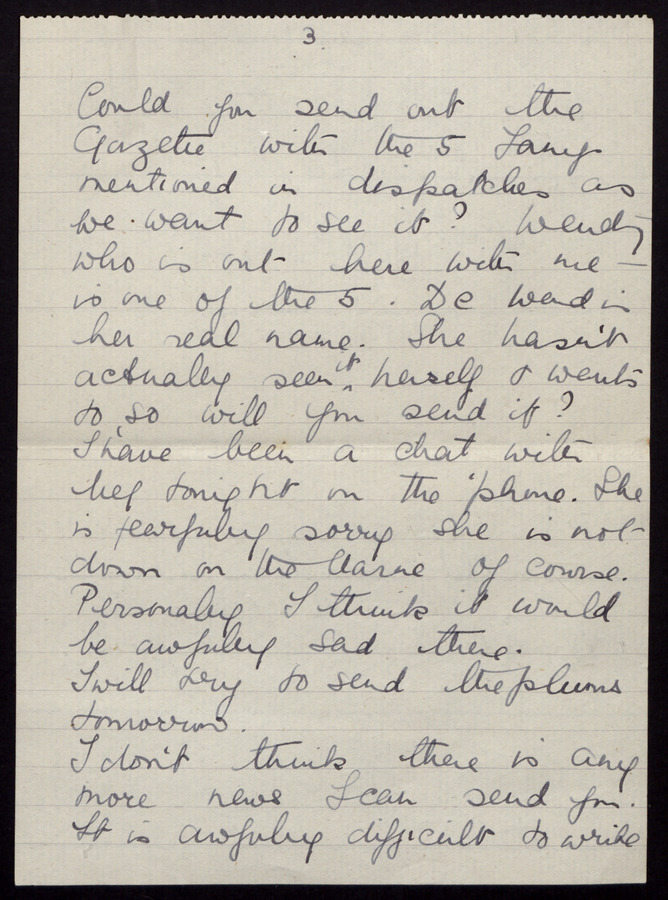 3
Could you send out the
Gazette with the 5 Fanys
mentioned in dispatches as
we want to see it? Wendy
who is out here with me —
is one of the 5. De Wend is
her real name. She hasn't
actually seen it herself & wants
to, so will you send it?
I have been a chat with
her tonight on the 'phone. She
is fearfully sorry she is not
down on the Marne of course.
Personally I think it would
be awfully sad there.
I will try to send the plums
tomorrow.
I don't think there is any
more news I can send you.
It is awfully difficult to write